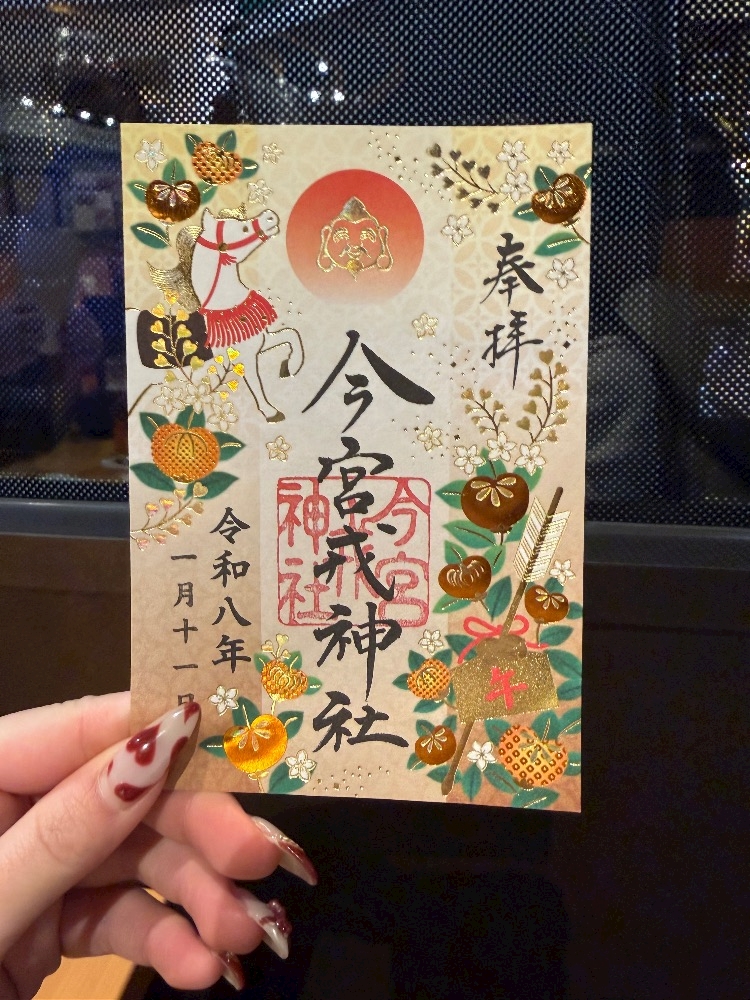 奉拝
今宮戎神社
今宮戎神社
令和八年
一月十一日
午